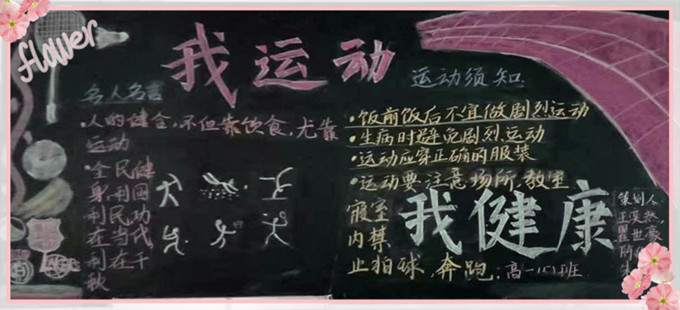 flower
我运动
名人名言
·人的健全,不但靠饮食,尤靠
运动
全民健
身,利国
利民,功
在当代
利在千
秋
运动须知
·饭前饭后不宜做剧烈运动
·生病时避免剧烈运动
·运动应穿正确的服装
·运动要注意场所,教室
寝室
内禁
止拍球,奔跑
我健康
高一(5)班
策划人